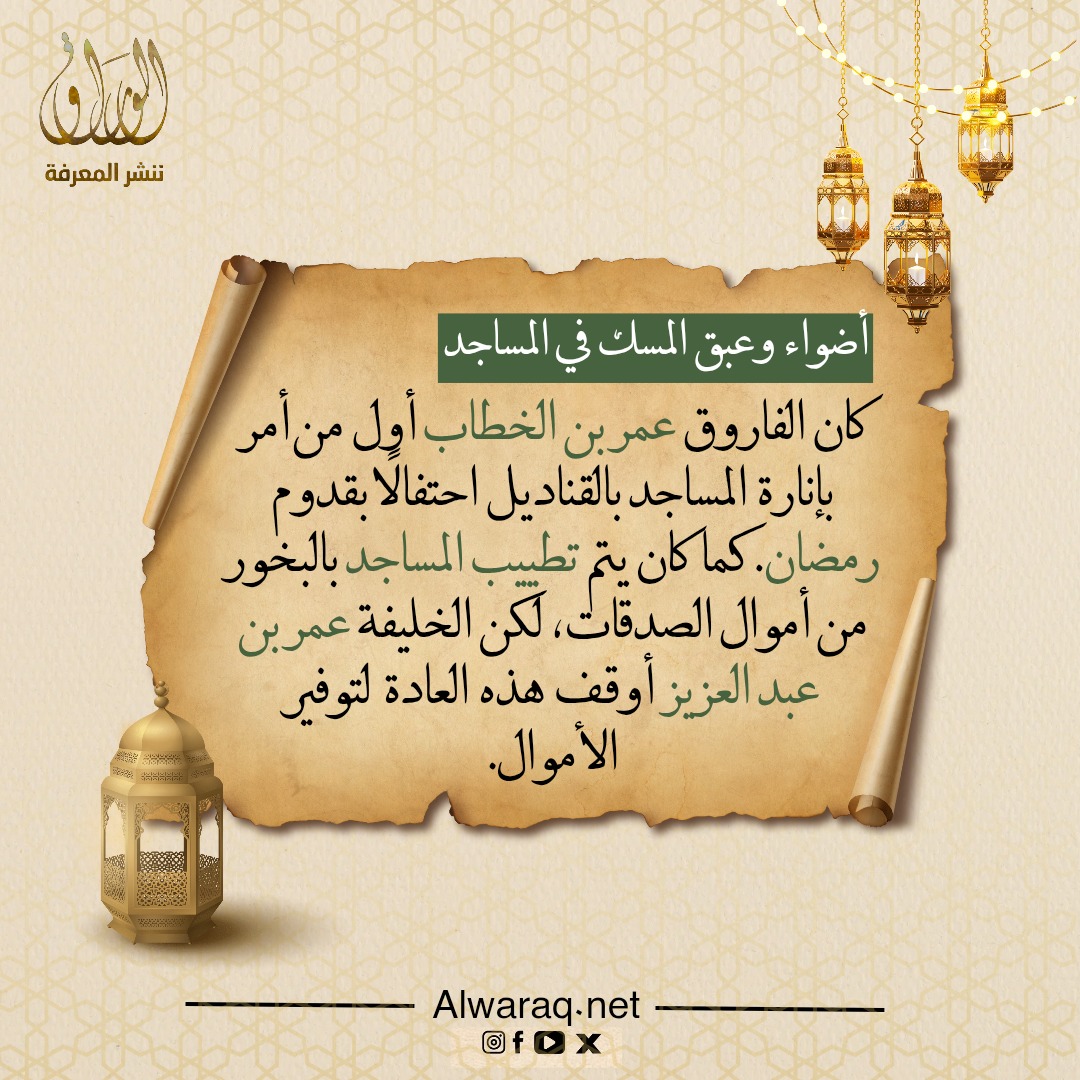 الوراق
ننشر المعرفة
أضواء وعبق المسك في المساجد
كان الفاروق عمر بن الخطاب أول من أمر
بإنارة المساجد بالقناديل احتفالًا بقدوم
رمضان. كما كان يتم تطييب المساجد بالبخور
من أموال الصدقات، لكن الخليفة عمر بن
عبد العزيز أوقف هذه العادة لتوفير
الأموال.
Alwaraq.net